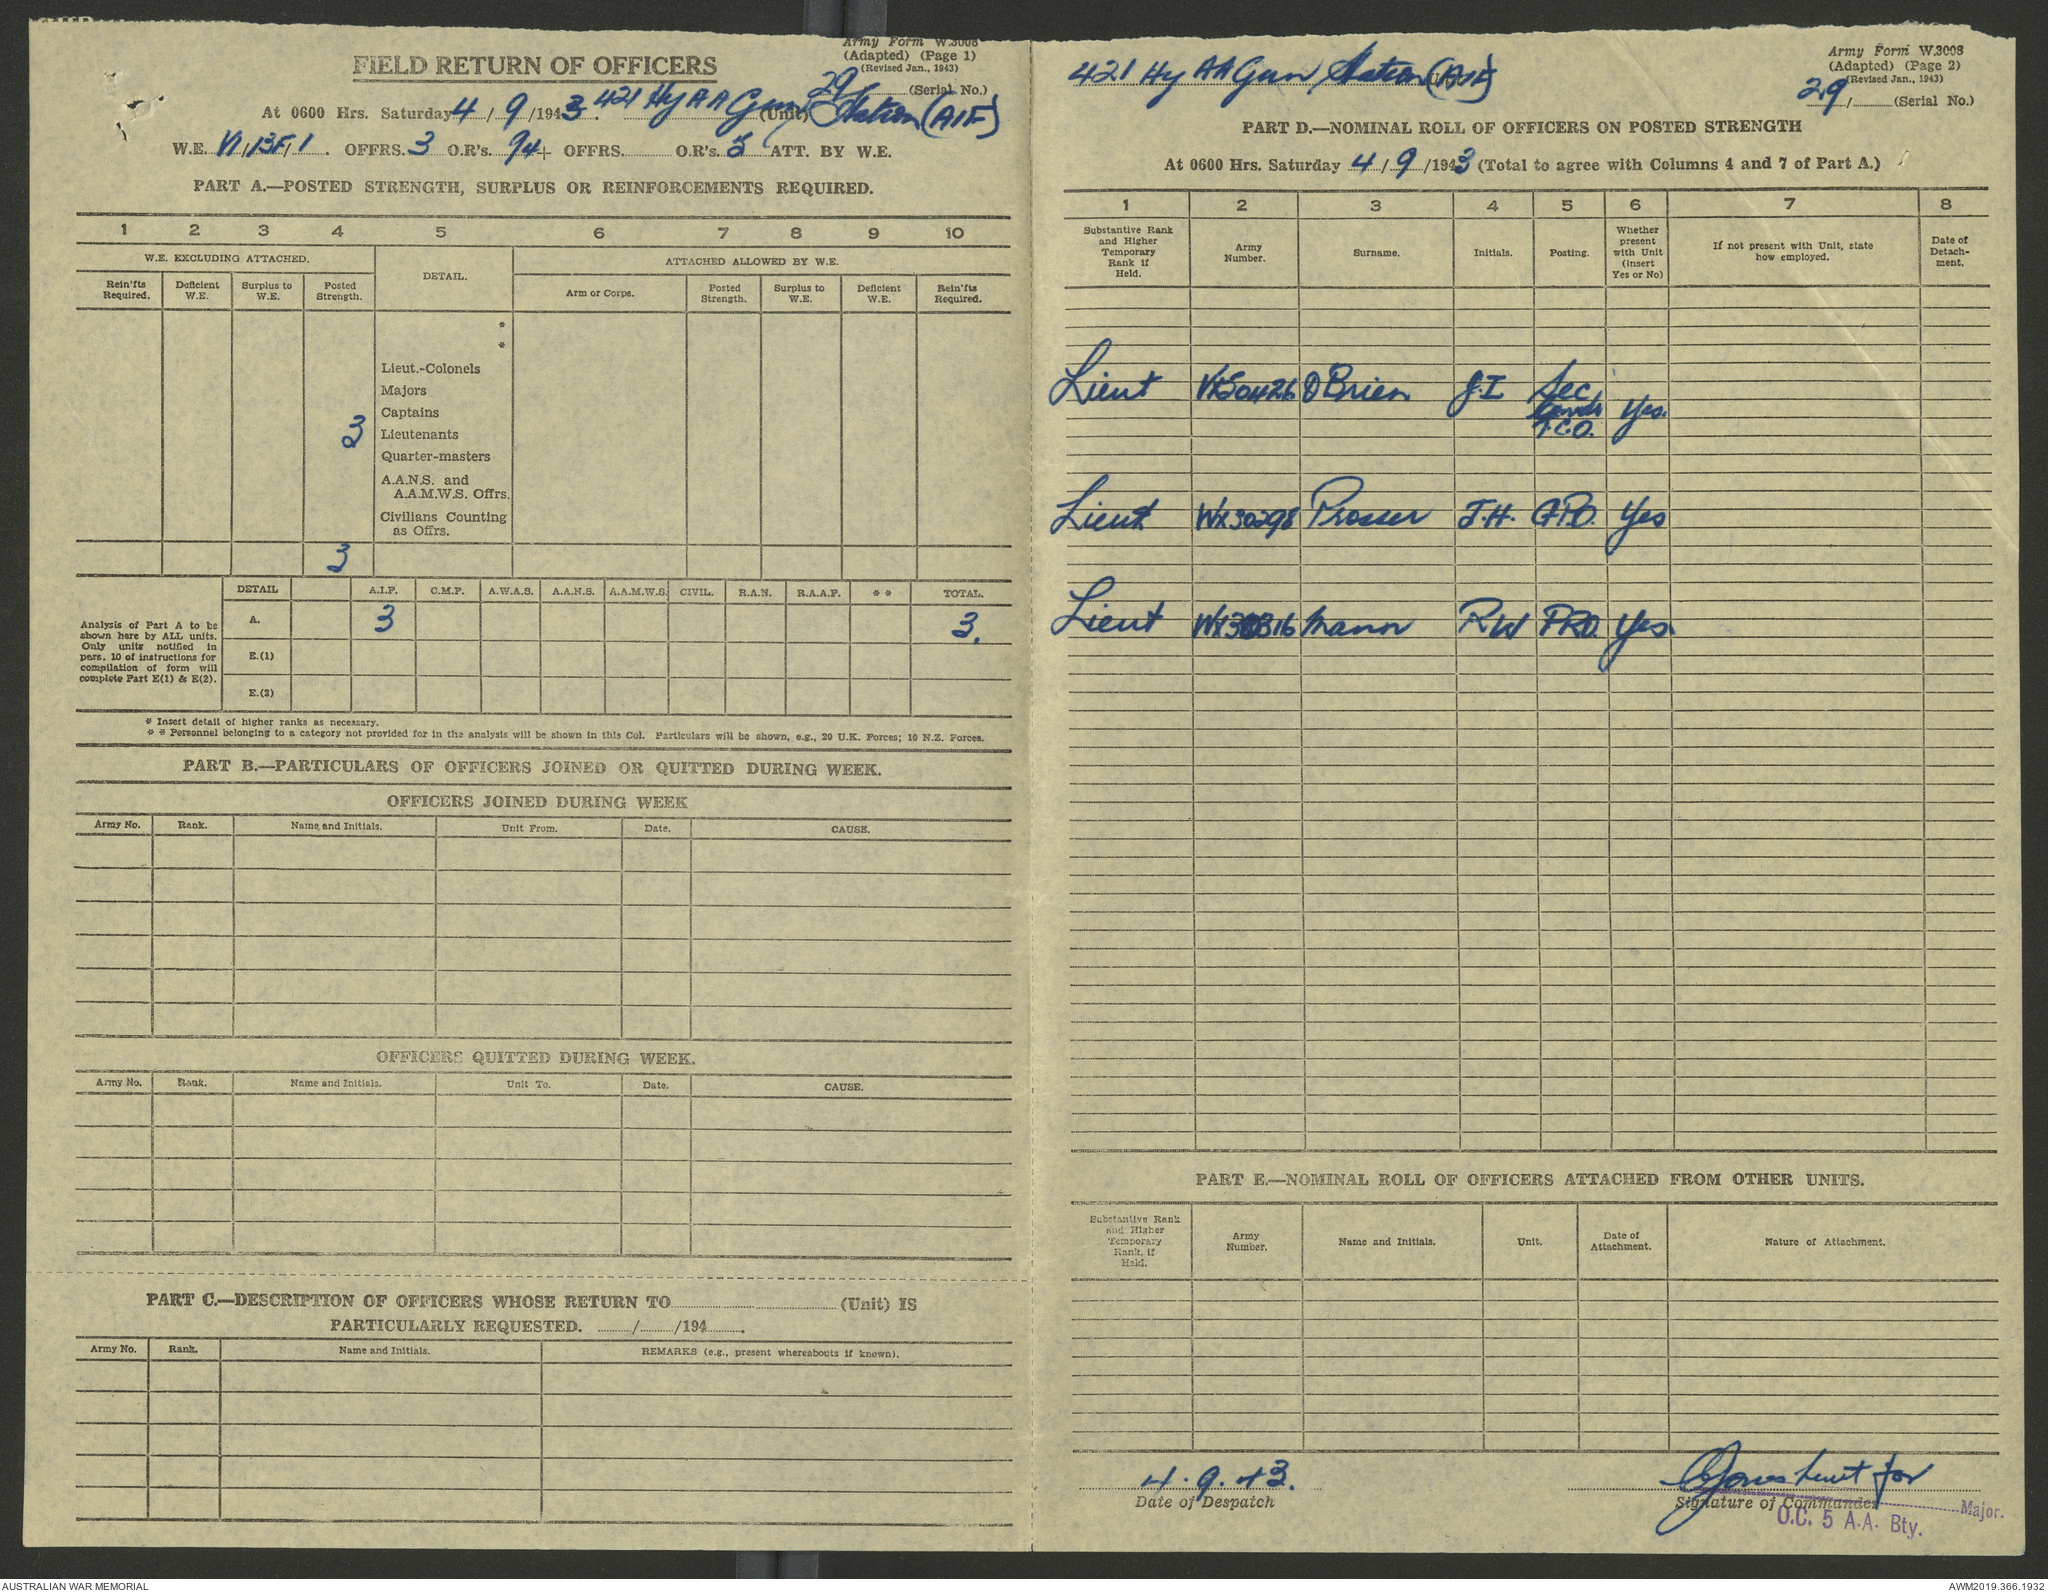 Army Form W.3008
(Adapted) (Page 1)
(Revised Jan., 1943)
FIELD RETURN OF OFFICERS
29/ (Serial No.)
At 0600 Hrs. Saturday 4/9/1943. 421 Hy AA Gun Station (AIF) (Unit)
W.E. VI/13F/1. OFFRS. 3 O.R's. 94+ OFFRS. O.R's. 5 ATT. BY W.E.
PART A.—POSTED STRENGTH, SURPLUS OR REINFORCEMENTS REQUIRED.
1 2 3 4 5 6 7 8 9 10
W.E. EXCLUDING ATTACHED. DETAIL. ATTACHED ALLOWED BY W.E.
Rein'fts Required. Deficient W.E. Surplus to W.E. Posted Strength. Arm or Corps. Posted Strength. Surplus to W.E. Deficient W.E. Rein'fts Required.
*
*
Lieut.-Colonels
Majors
Captains
3 Lieutenants
Quarter-masters
A.A.N.S. and
A.A.M.W.S. Offrs.
Civilians Counting
as Offrs.
3
Analysis of Part A to be shown here by ALL units. Only units notified in para. 10 of instructions for compilation of form will complete Part E(1) & E(2).
DETAIL A.I.F. C.M.F. A.W.A.S. A.A.N.S. A.A.M.W.S. CIVIL. R.A.N. R.A.A.F. * * TOTAL.
A. 3 3.
E.(1)
E.(2)
* Insert detail of higher ranks as necessary.
* * Personnel belonging to a category not provided for in the analysis will be shown in this Col. Particulars will be shown, e.g., 20 U.K. Forces; 10 N.Z. Forces.
PART B.—PARTICULARS OF OFFICERS JOINED OR QUITTED DURING WEEK.
OFFICERS JOINED DURING WEEK
Army No. Rank. Name and Initials. Unit From. Date. CAUSE.
OFFICERS QUITTED DURING WEEK.
Army No. Rank. Name and Initials. Unit To. Date. CAUSE.
PART C.—DESCRIPTION OF OFFICERS WHOSE RETURN TO (Unit) IS
PARTICULARLY REQUESTED. / /194 .
Army No. Rank. Name and Initials. REMARKS (e.g., present whereabouts if known).
421 Hy AA Gun Station (AIF)
Army Form W.3008
(Adapted) (Page 2)
(Revised Jan., 1943)
29/ (Serial No.)
PART D.—NOMINAL ROLL OF OFFICERS ON POSTED STRENGTH
At 0600 Hrs. Saturday 4/9/1943 (Total to agree with Columns 4 and 7 of Part A.)
1 2 3 4 5 6 7 8
Substantive Rank and Higher Temporary Rank if Held. Army Number. Surname. Initials. Posting. Whether present with Unit (insert Yes or No) If not present with Unit, state how employed. Date of Detach-ment.
Lieut VX50426 O'Brien J.I Sec Comdr T.C.O. Yes.
Lieut WX30298 Prosser J.H. G.P.O. Yes
Lieut WX30316 Mann R W PRO. Yes.
PART E.—NOMINAL ROLL OF OFFICERS ATTACHED FROM OTHER UNITS.
Substantive Rank and Higher Temporary Rank, if Held. Army Number. Name and Initials. Unit. Date of Attachment. Nature of Attachment.
4.9.43.
Date of Despatch
Jones Lieut for
Signature of Commander
Major.
O.C. 5 A.A. Bty.
AUSTRALIAN WAR MEMORIAL
AWM2019.366.1932